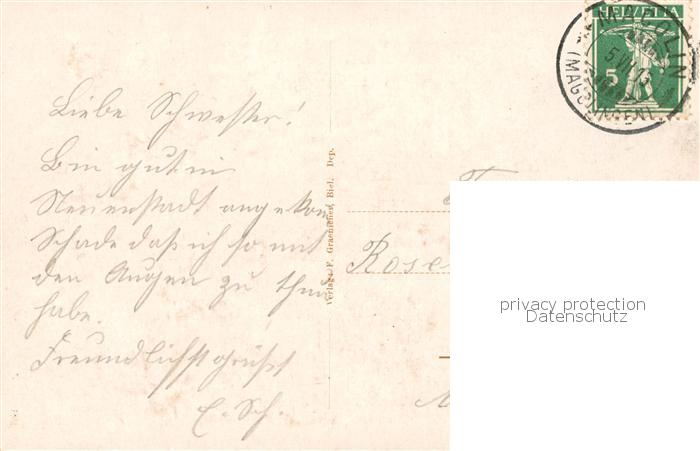 Liebe Schwester!
Bin gut in
Neuenstadt angekom
Schade daß ich so mit
den Augen zu thun
habe.
Freundlichst grüßt
E. Sch.
Verlag F. Graenicher, Biel. Dep.
HELVETIA
5
MAGGLIN
(MAGGLINGEN)
Rose
privacy protection
Datenschutz